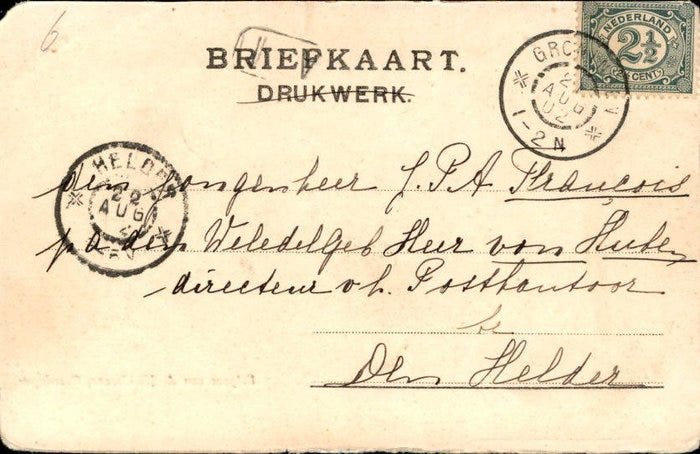 6
BRIEFKAART.
DRUKWERK.
NEDERLAND
2½
CENT
AUG
02
1-2N
HELDER
22
AUG
den Jongenheer J.P.A François
p a den WeledelGeb Heer von
directeur v h. Postkantoor
te
Den Helder